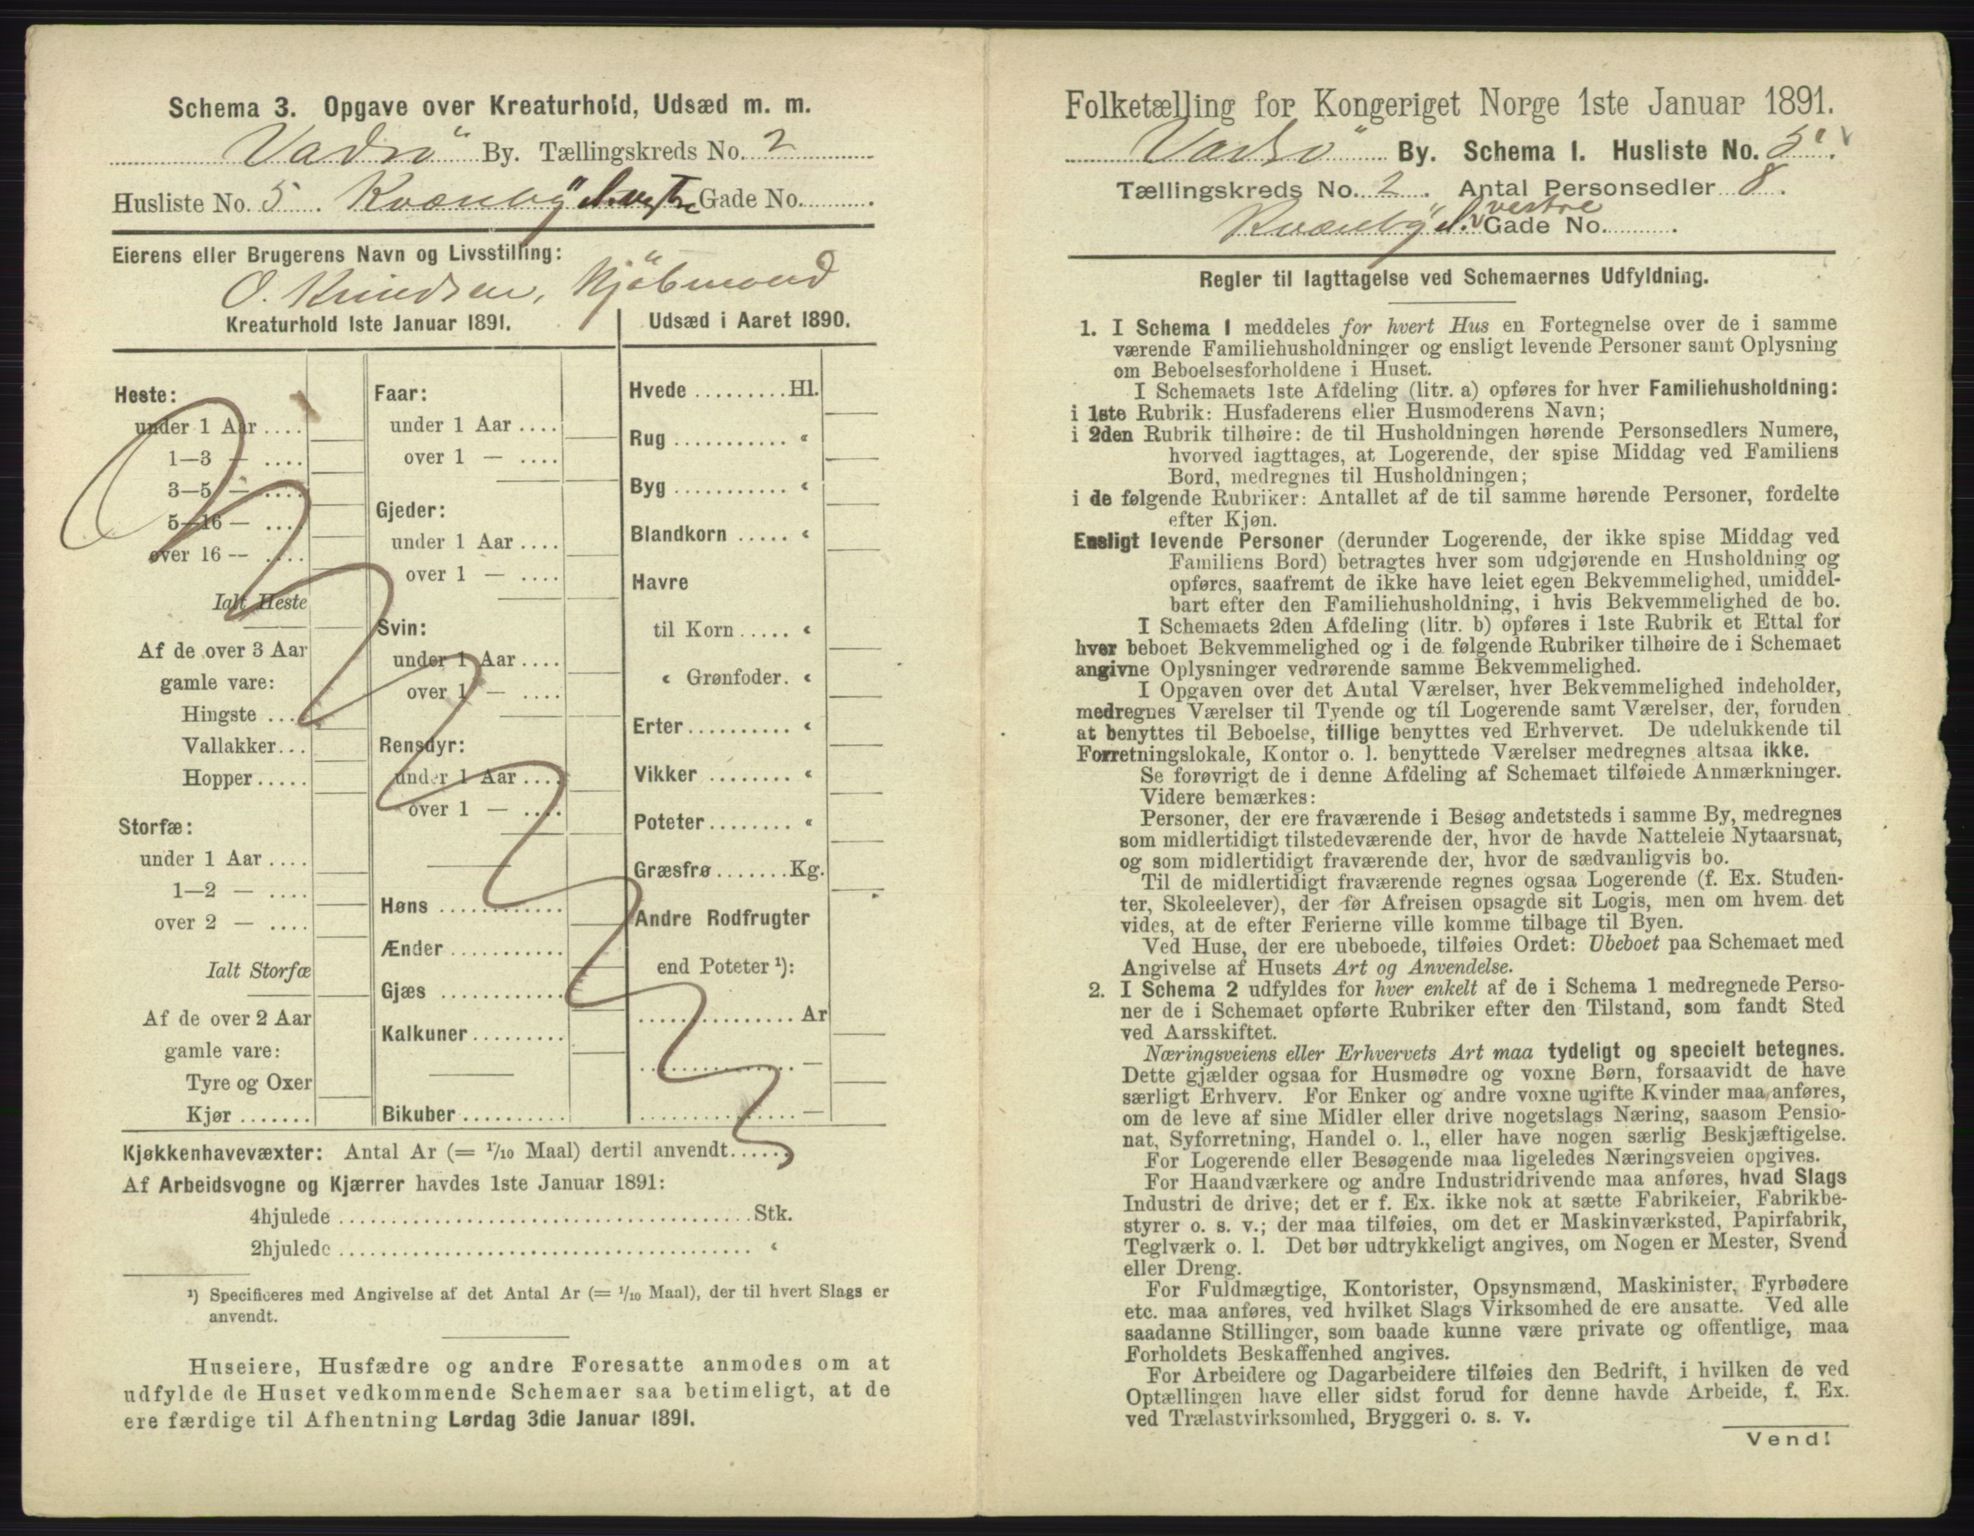 Schema 3. Opgave over Kreaturhold, Udsæd m. m.
Vadsö By. Tællingskreds No. 2
Husliste No. 5. Kvænby vestre Gade No. .
Eierens eller Brugerens Navn og Livsstilling:
O. Knudsen, Kjöbmand
Kreaturhold 1ste Januar 1891.
Heste:
under 1 Aar ....
1—3 — ....
3—5 — ....
5—16 — ....
over 16 — ....
Ialt Heste
Af de over 3 Aar
gamle vare:
Hingste ...
Vallakker...
Hopper.....
Storfæ:
under 1 Aar ....
1—2 — ....
over 2 — ....
Ialt Storfæ
Af de over 2 Aar
gamle vare:
Tyre og Oxer
Kjør .......
Faar:
under 1 Aar ....
over 1 — ....
Gjeder:
under 1 Aar ....
over 1 — ....
Svin:
under 1 Aar ....
over 1 — ....
Rensdyr:
under 1 Aar ....
over 1 — ....
Høns ............
Ænder ...........
Gjæs ............
Kalkuner .........
Bikuber ..........
Udsæd i Aaret 1890.
Hvede .........Hl.
Rug ........... «
Byg ........... «
Blandkorn ..... «
Havre
til Korn ..... «
« Grønfoder. «
Erter.......... «
Vikker ........ «
Poteter........ «
Græsfrø .......Kg.
Andre Rodfrugter
end Poteter ¹):
............... Ar
............... —
............... —
Kjøkkenhavevæxter: Antal Ar (= 1/10 Maal) dertil anvendt......
Af Arbeidsvogne og Kjærrer havdes 1ste Januar 1891:
4hjulede ......................................Stk.
2hjulede ...................................... «
¹) Specificeres med Angivelse af det Antal Ar (= 1/10 Maal), der til hvert Slags er
anvendt.
Huseiere, Husfædre og andre Foresatte anmodes om at
udfylde de Huset vedkommende Schemaer saa betimeligt, at de
ere færdige til Afhentning Lørdag 3die Januar 1891.
Folketælling for Kongeriget Norge 1ste Januar 1891.
Vadsö By. Schema 1. Husliste No. 5.
Tællingskreds No. 2. Antal Personsedler 8.
Kvænby vestre Gade No. .
Regler til Iagttagelse ved Schemaernes Udfyldning.
1. I Schema 1 meddeles for hvert Hus en Fortegnelse over de i samme
værende Familiehusholdninger og ensligt levende Personer samt Oplysning
om Beboelsesforholdene i Huset.
I Schemaets 1ste Afdeling (litr. a) opføres for hver Familiehusholdning:
i 1ste Rubrik: Husfaderens eller Husmoderens Navn;
i 2den Rubrik tilhøire: de til Husholdningen hørende Personsedlers Numere,
hvorved iagttages, at Logerende, der spise Middag ved Familiens
Bord, medregnes til Husholdningen;
i de følgende Rubriker: Antallet af de til samme hørende Personer, fordelte
efter Kjøn.
Ensligt levende Personer (derunder Logerende, der ikke spise Middag ved
Familiens Bord) betragtes hver som udgjørende en Husholdning og
opføres, saafremt de ikke have leiet egen Bekvemmelighed, umiddel-
bart efter den Familiehusholdning, i hvis Bekvemmelighed de bo.
I Schemaets 2den Afdeling (litr. b) opføres i 1ste Rubrik et Ettal for
hver beboet Bekvemmelighed og i de følgende Rubriker tilhøire de i Schemaet
angivne Oplysninger vedrørende samme Bekvemmelighed.
I Opgaven over det Antal Værelser, hver Bekvemmelighed indeholder,
medregnes Værelser til Tyende og til Logerende samt Værelser, der, foruden
at benyttes til Beboelse, tillige benyttes ved Erhvervet. De udelukkende til
Forretningslokale, Kontor o. l. benyttede Værelser medregnes altsaa ikke.
Se forøvrigt de i denne Afdeling af Schemaet tilføiede Anmærkninger.
Videre bemærkes:
Personer, der ere fraværende i Besøg andetsteds i samme By, medregnes
som midlertidigt tilstedeværende der, hvor de havde Natteleie Nytaarsnat,
og som midlertidigt fraværende der, hvor de sædvanligvis bo.
Til de midlertidigt fraværende regnes ogsaa Logerende (f. Ex. Studen-
ter, Skoleelever), der før Afreisen opsagde sit Logis, men om hvem det
vides, at de efter Ferierne ville komme tilbage til Byen.
Ved Huse, der ere ubeboede, tilføies Ordet: Ubeboet paa Schemaet med
Angivelse af Husets Art og Anvendelse.
2. I Schema 2 udfyldes for hver enkelt af de i Schema 1 medregnede Perso-
ner de i Schemaet opførte Rubriker efter den Tilstand, som fandt Sted
ved Aarsskiftet.
Næringsveiens eller Erhvervets Art maa tydeligt og specielt betegnes.
Dette gjælder ogsaa for Husmødre og voxne Børn, forsaavidt de have
særligt Erhverv. For Enker og andre voxne ugifte Kvinder maa anføres,
om de leve af sine Midler eller drive nogetslags Næring, saasom Pensio-
nat, Syforretning, Handel o. l., eller have nogen særlig Beskjæftigelse.
For Logerende eller Besøgende maa ligeledes Næringsveien opgives.
For Haandværkere og andre Industridrivende maa anføres, hvad Slags
Industri de drive; det er f. Ex. ikke nok at sætte Fabrikeier, Fabrikbe-
styrer o. s. v.; der maa tilføies, om det er Maskinværksted, Papirfabrik,
Teglværk o. l. Det bør udtrykkeligt angives, om Nogen er Mester, Svend
eller Dreng.
For Fuldmægtige, Kontorister, Opsynsmænd, Maskinister, Fyrbødere
etc. maa anføres, ved hvilket Slags Virksomhed de ere ansatte. Ved alle
saadanne Stillinger, som baade kunne være private og offentlige, maa
Forholdets Beskaffenhed angives.
For Arbeidere og Dagarbeidere tilføies den Bedrift, i hvilken de ved
Optællingen have eller sidst forud for denne havde Arbeide, f. Ex.
ved Trælastvirksomhed, Bryggeri o. s. v.
Vend!